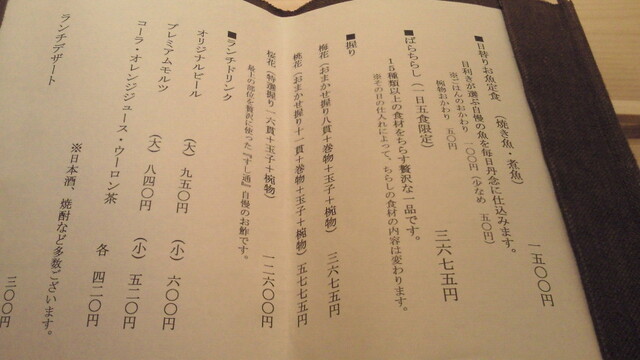 ■日替りお魚定食 (焼き魚・煮魚) 一五〇〇円
目利きが選ぶ自慢の魚を毎日丹念に仕込みます。
※ごはんのおかわり 一〇〇円(少なめ 五〇円)
椀物おかわり 五〇円
■ばらちらし (一日五食限定) 三六七五円
15種類以上の食材をちらす贅沢な一品です。
※その日の仕入れによって、ちらしの食材の内容は変わります。
■握り
梅花(おまかせ握り八貫+巻物+玉子+椀物) 三六七五円
桃花(おまかせ握り十一貫+巻物+玉子+椀物) 五七七五円
桜花(特選握り一六貫+玉子+椀物) 一二六〇〇円
最上の部位を贅沢に使った『すし通』自慢のお鮓です。
■ランチドリンク
オリジナルビール (大) 九五〇円 (小) 六〇〇円
プレミアムモルツ (大) 八四〇円 (小) 五二〇円
コーラ・オレンジジュース・ウーロン茶 各 四二〇円
※日本酒、焼酎など多数ございます。
ランチデザート 三〇〇円